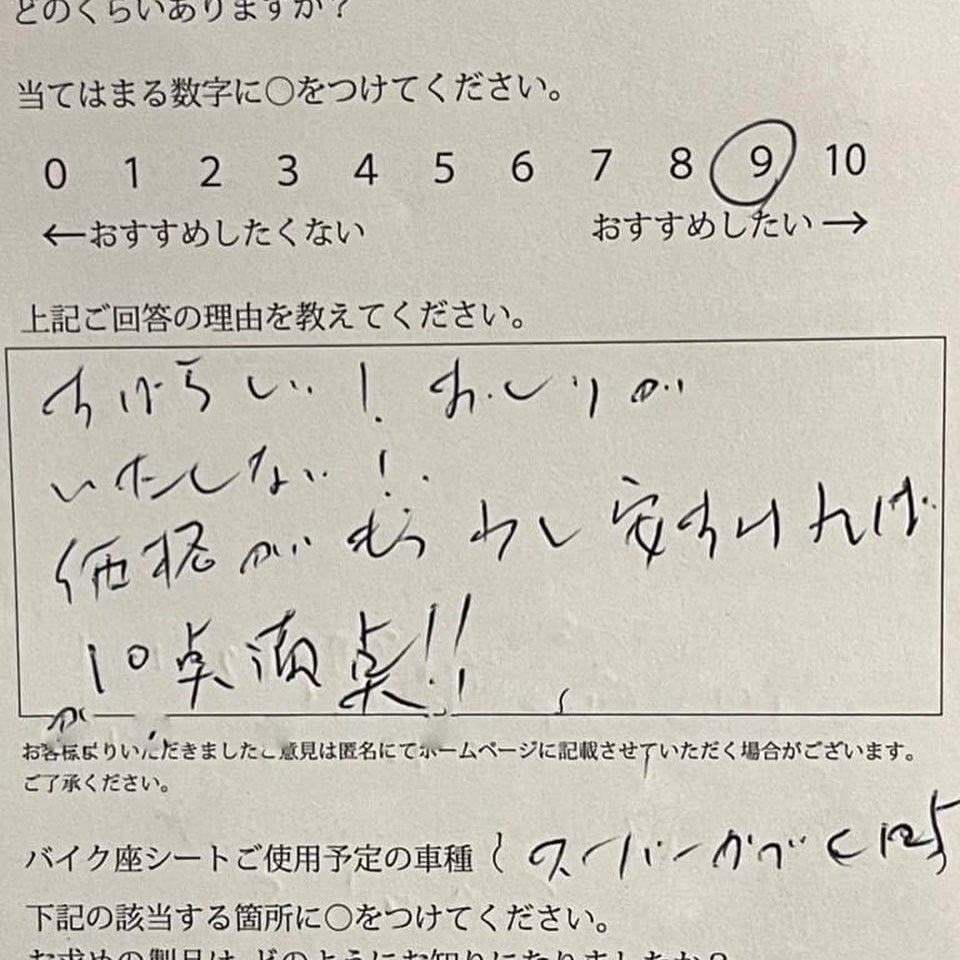 どのくらいありますか？
当てはまる数字に○をつけてください。
0 1 2 3 4 5 6 7 8 9 10
←おすすめしたくない おすすめしたい→
上記ご回答の理由を教えてください。
すばらしい！おしりが
いたくない！
価格がもう少し安すければ
10点満点!!
お客様よりいただきましたご意見は匿名にてホームページに記載させていただく場合がございます。
ご了承ください。
バイク座シートご使用予定の車種 スーパーカブC125
下記の該当する箇所に○をつけてください。
お求めの製品は、どのようにお知りになりましたか？